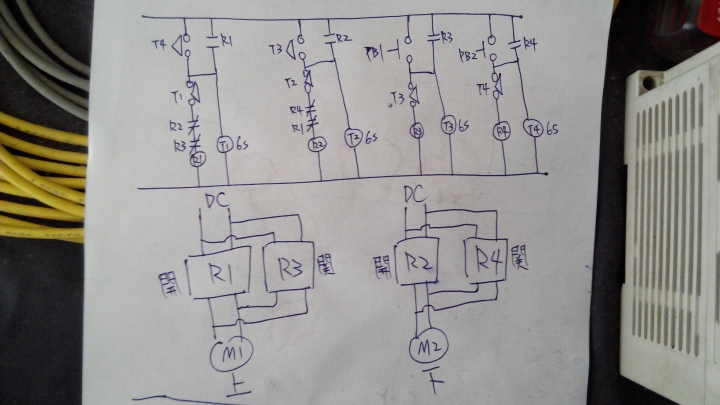 T4 R1 T3 R2 PB1 R3 PB2 R4
T1 T2 T3 T4
R2 R4
R3 R1
R1 T1 6S R2 T2 6S R3 T3 6S R4 T4 6S
DC DC
R1 R3 R2 R4
M1 M2
上 下